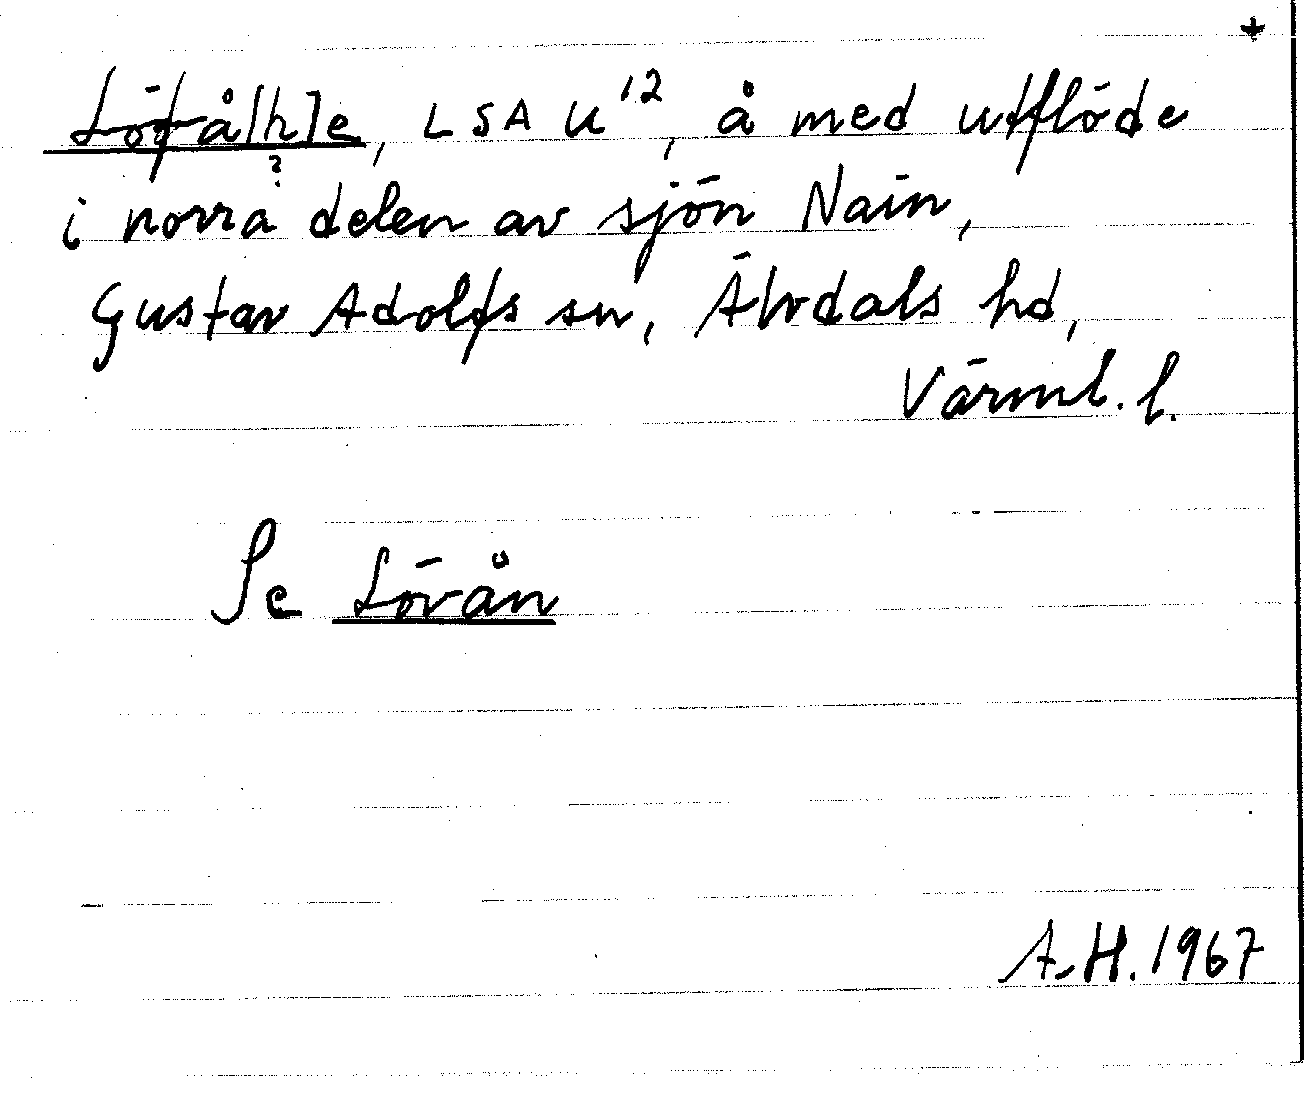 Löfå[h]e, LSA U12, å med utflöde
?
i norra delen av sjön Nain,
Gustav Adolfs sn, Älvdals hd,
Värml. l.
Se Lövån
A.H. 1967